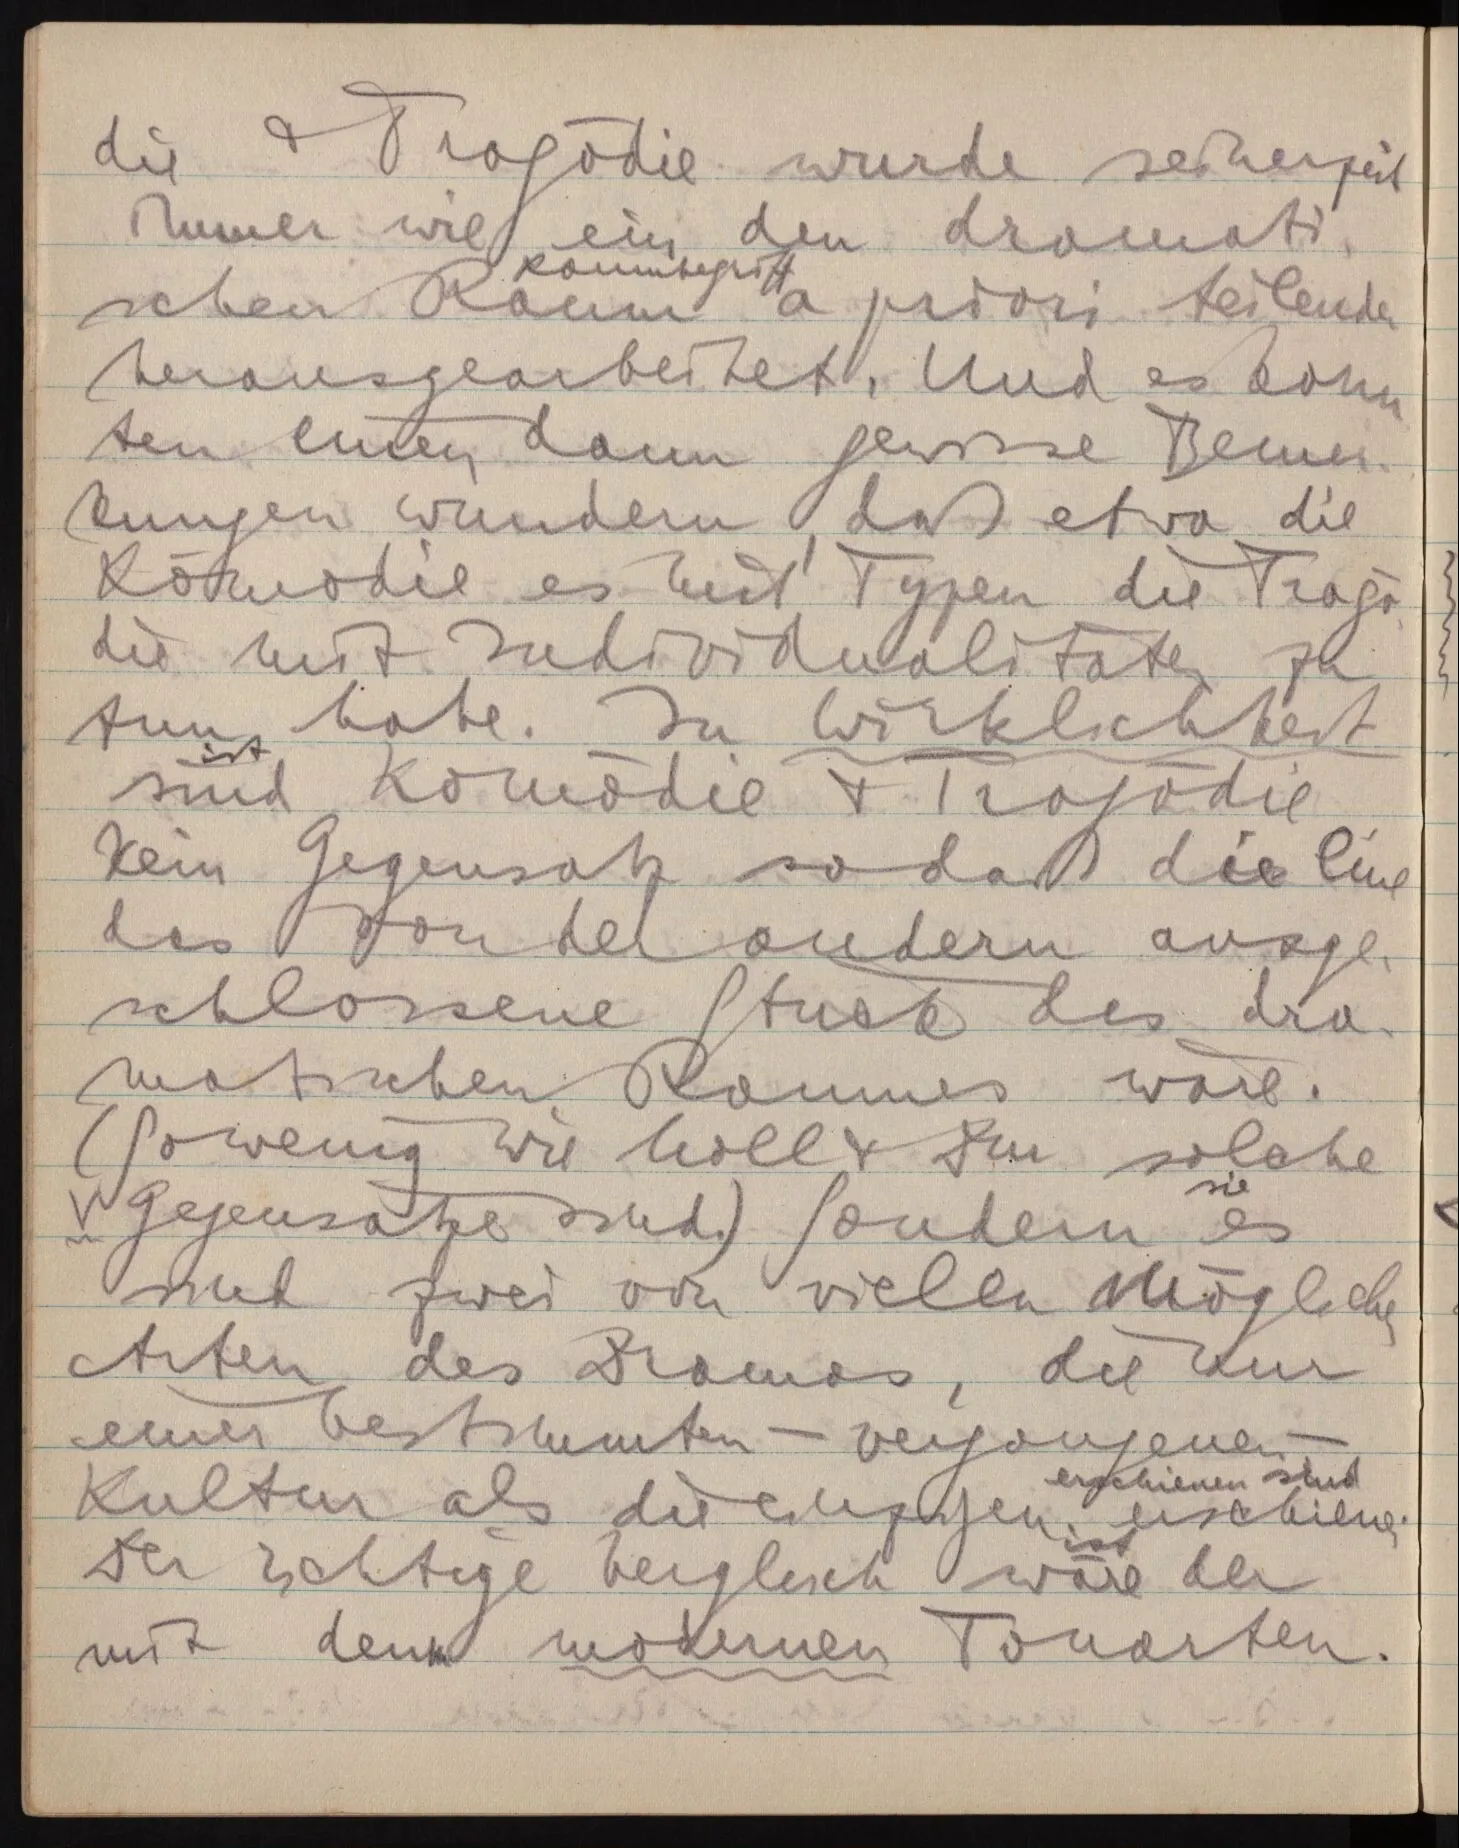 die & Tragödie wurde seinerzeit
immer wie ein den dramati-
schen Raum Raumbegriff a priori teilender
herausgearbeitet. Und es konn
ten einen dann gewisse Bemer-
kungen wundern, daß etwa die
Komödie es mit Typen die Tragö-
die mit Individualitäten zu
tun habe. In Wirklichkeit
sind ist Komödie & Tragödie
kein Gegensatz sodaß die eine
das von der andern ausge-
schlossene Stück des dra-
matischen Raumes wäre.
(Sowenig wie Moll & Dur solche
Gegensätze sind.) Sondern es sie
sind zwei von vielen möglichen
Arten des Dramas, die nur
einer bestimmten – vergangenen –
Kultur als die einzigen erschienen erschienen sind.
Der richtige Vergleich wäre ist der
mit den modernen Tonarten.